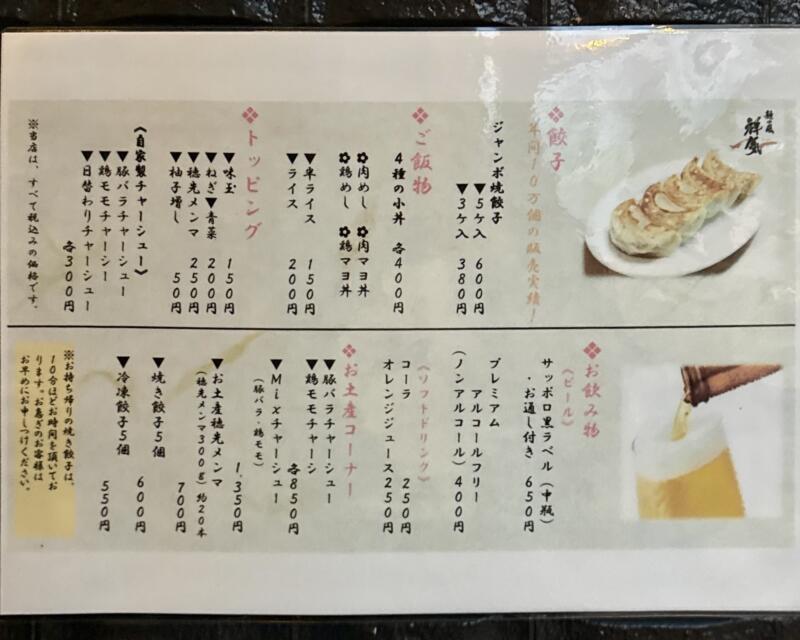 祥気
❖餃子
年間10万個の販売実績！
ジャンボ焼餃子
▼5ケ入 600円
▼3ケ入 380円
❖ご飯物
4種の小丼 各400円
✿肉めし ✿肉マヨ丼
✿鶏めし ✿鶏マヨ丼
▼半ライス 150円
▼ライス 200円
❖トッピング
▼味玉 150円
▼ねぎ▼青菜 200円
▼穂先メンマ 250円
▼柚子増し 50円
《自家製チャーシュー》
▼豚バラチャーシュー
▼鶏モモチャーシー
▼日替わりチャーシュー
各300円
※当店は、すべて税込みの価格です。
❖お飲み物
《ビール》
サッポロ黒ラベル（中瓶）
・お通し付き 650円
プレミアム
アルコールフリー
（ノンアルコール）400円
《ソフトドリンク》
コーラ 250円
オレンジジュース250円
❖お土産コーナー
▼豚バラチャーシュー
▼鶏モモチャーシ
各850円
▼Mixチャーシュー
（豚バラ・鶏モモ）
1,350円
▼お土産穂先メンマ
（穂先メンマ300g）約20本
700円
▼焼き餃子5個
600円
▼冷凍餃子5個
550円
※お持ち帰りの焼き餃子は、
10分ほどお時間を頂いてお
ります。お急ぎのお客様は
お早めにお申しつけください。